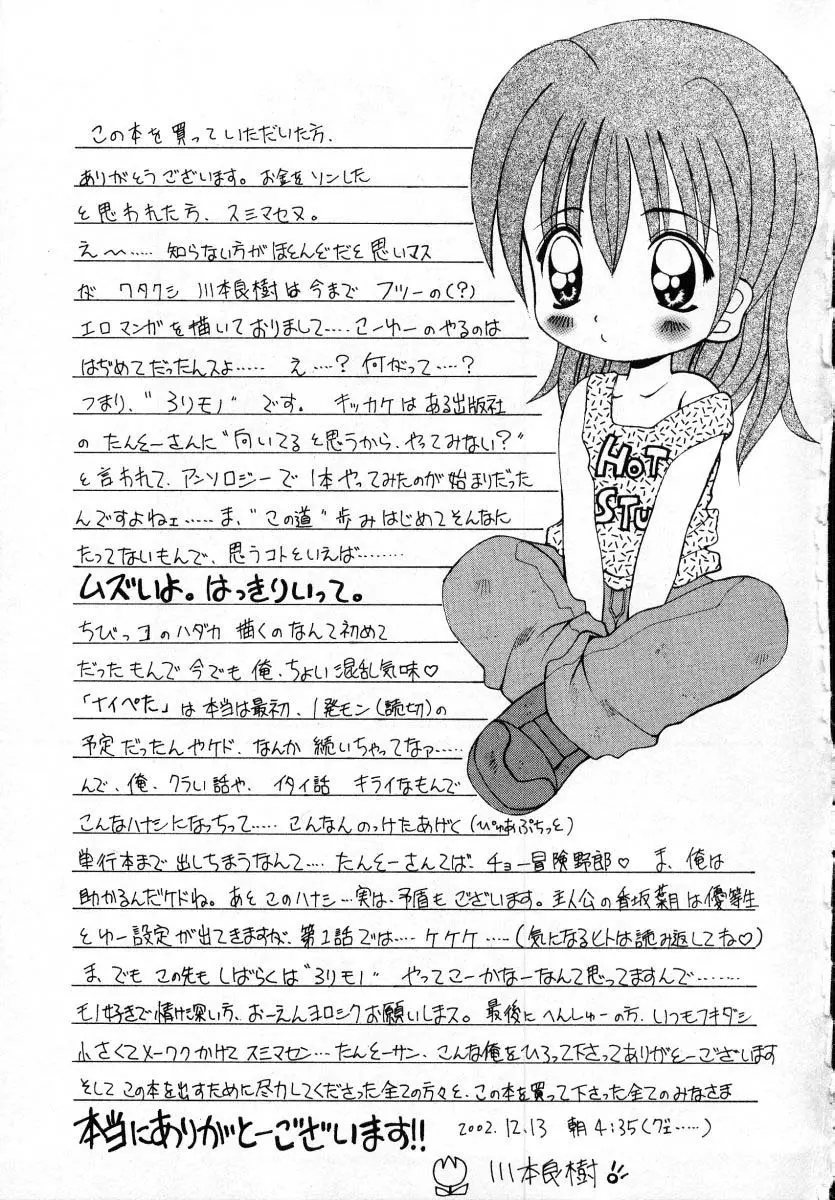 この本を買っていただいた方、
ありがとうございます。お金をソンした
と思われた方、スミマセヌ。
え〜…… 知らない方がほとんどだと思いマス
が ワタクシ 川本良樹は今まで フツーの(?)
エロマンガを描いておりまして…… こーゆーのやるのは
はぢめてだったんスよ…… え……? 何がって……?
つまり、"ろりモノ" です。 キッカケはある出版社
の たんとーさんに"向いてると思うから、やってみない?"
と言われて、アンソロジーで1本やってみたのが始まりだった
んですよねェ…… ま、"この道" 歩みはじめてそんなに
たってないもんで、思うコトといえば………
ムズいよ。はっきりいって。
ちびっ コのハダカ 描くのなんて初めて
だったもんで今でも俺、ちょい混乱気味♡
「ナイペた」は本当は最初、1発モン(読切)の
予定だったんやケド、なんか 続いちゃってなァ……
んで、俺、クラい話や、イタイ話 キライなもんで
こんなハナシになっちって…… こんなんのっけたあげく(ぴゅあぷちっと)
単行本まで出しちまうなんて…… たんとーさんてば、チョー冒険野郎♡ ま、俺は
助かるんだケドね。あと このハナシ…実は、矛盾もございます。主人公の香坂葉月は優等生
とゆー設定が出てきますが、第1話では…… ケケケ……(気になるヒトは読み返してね♡)
ま、でも この先もしばらくは"ろりモノ" やってこーかなーなんて思ってますんで………
モノ好きで情け深い方、おーえんヨロシクお願いしまス。最後にへんしゅーの方、いつもフキダシ
小さくてメーワクかけてスミマセン…たんとーサン、こんな俺をひろって下さってありがとーございます
そして この本を出すために尽力してくださった全ての方々と、この本を買って下さった全てのみなさま
本当にありがとーございます!!
2002.12.13 朝4:35(グエ……)
川本良樹
HOT
STU